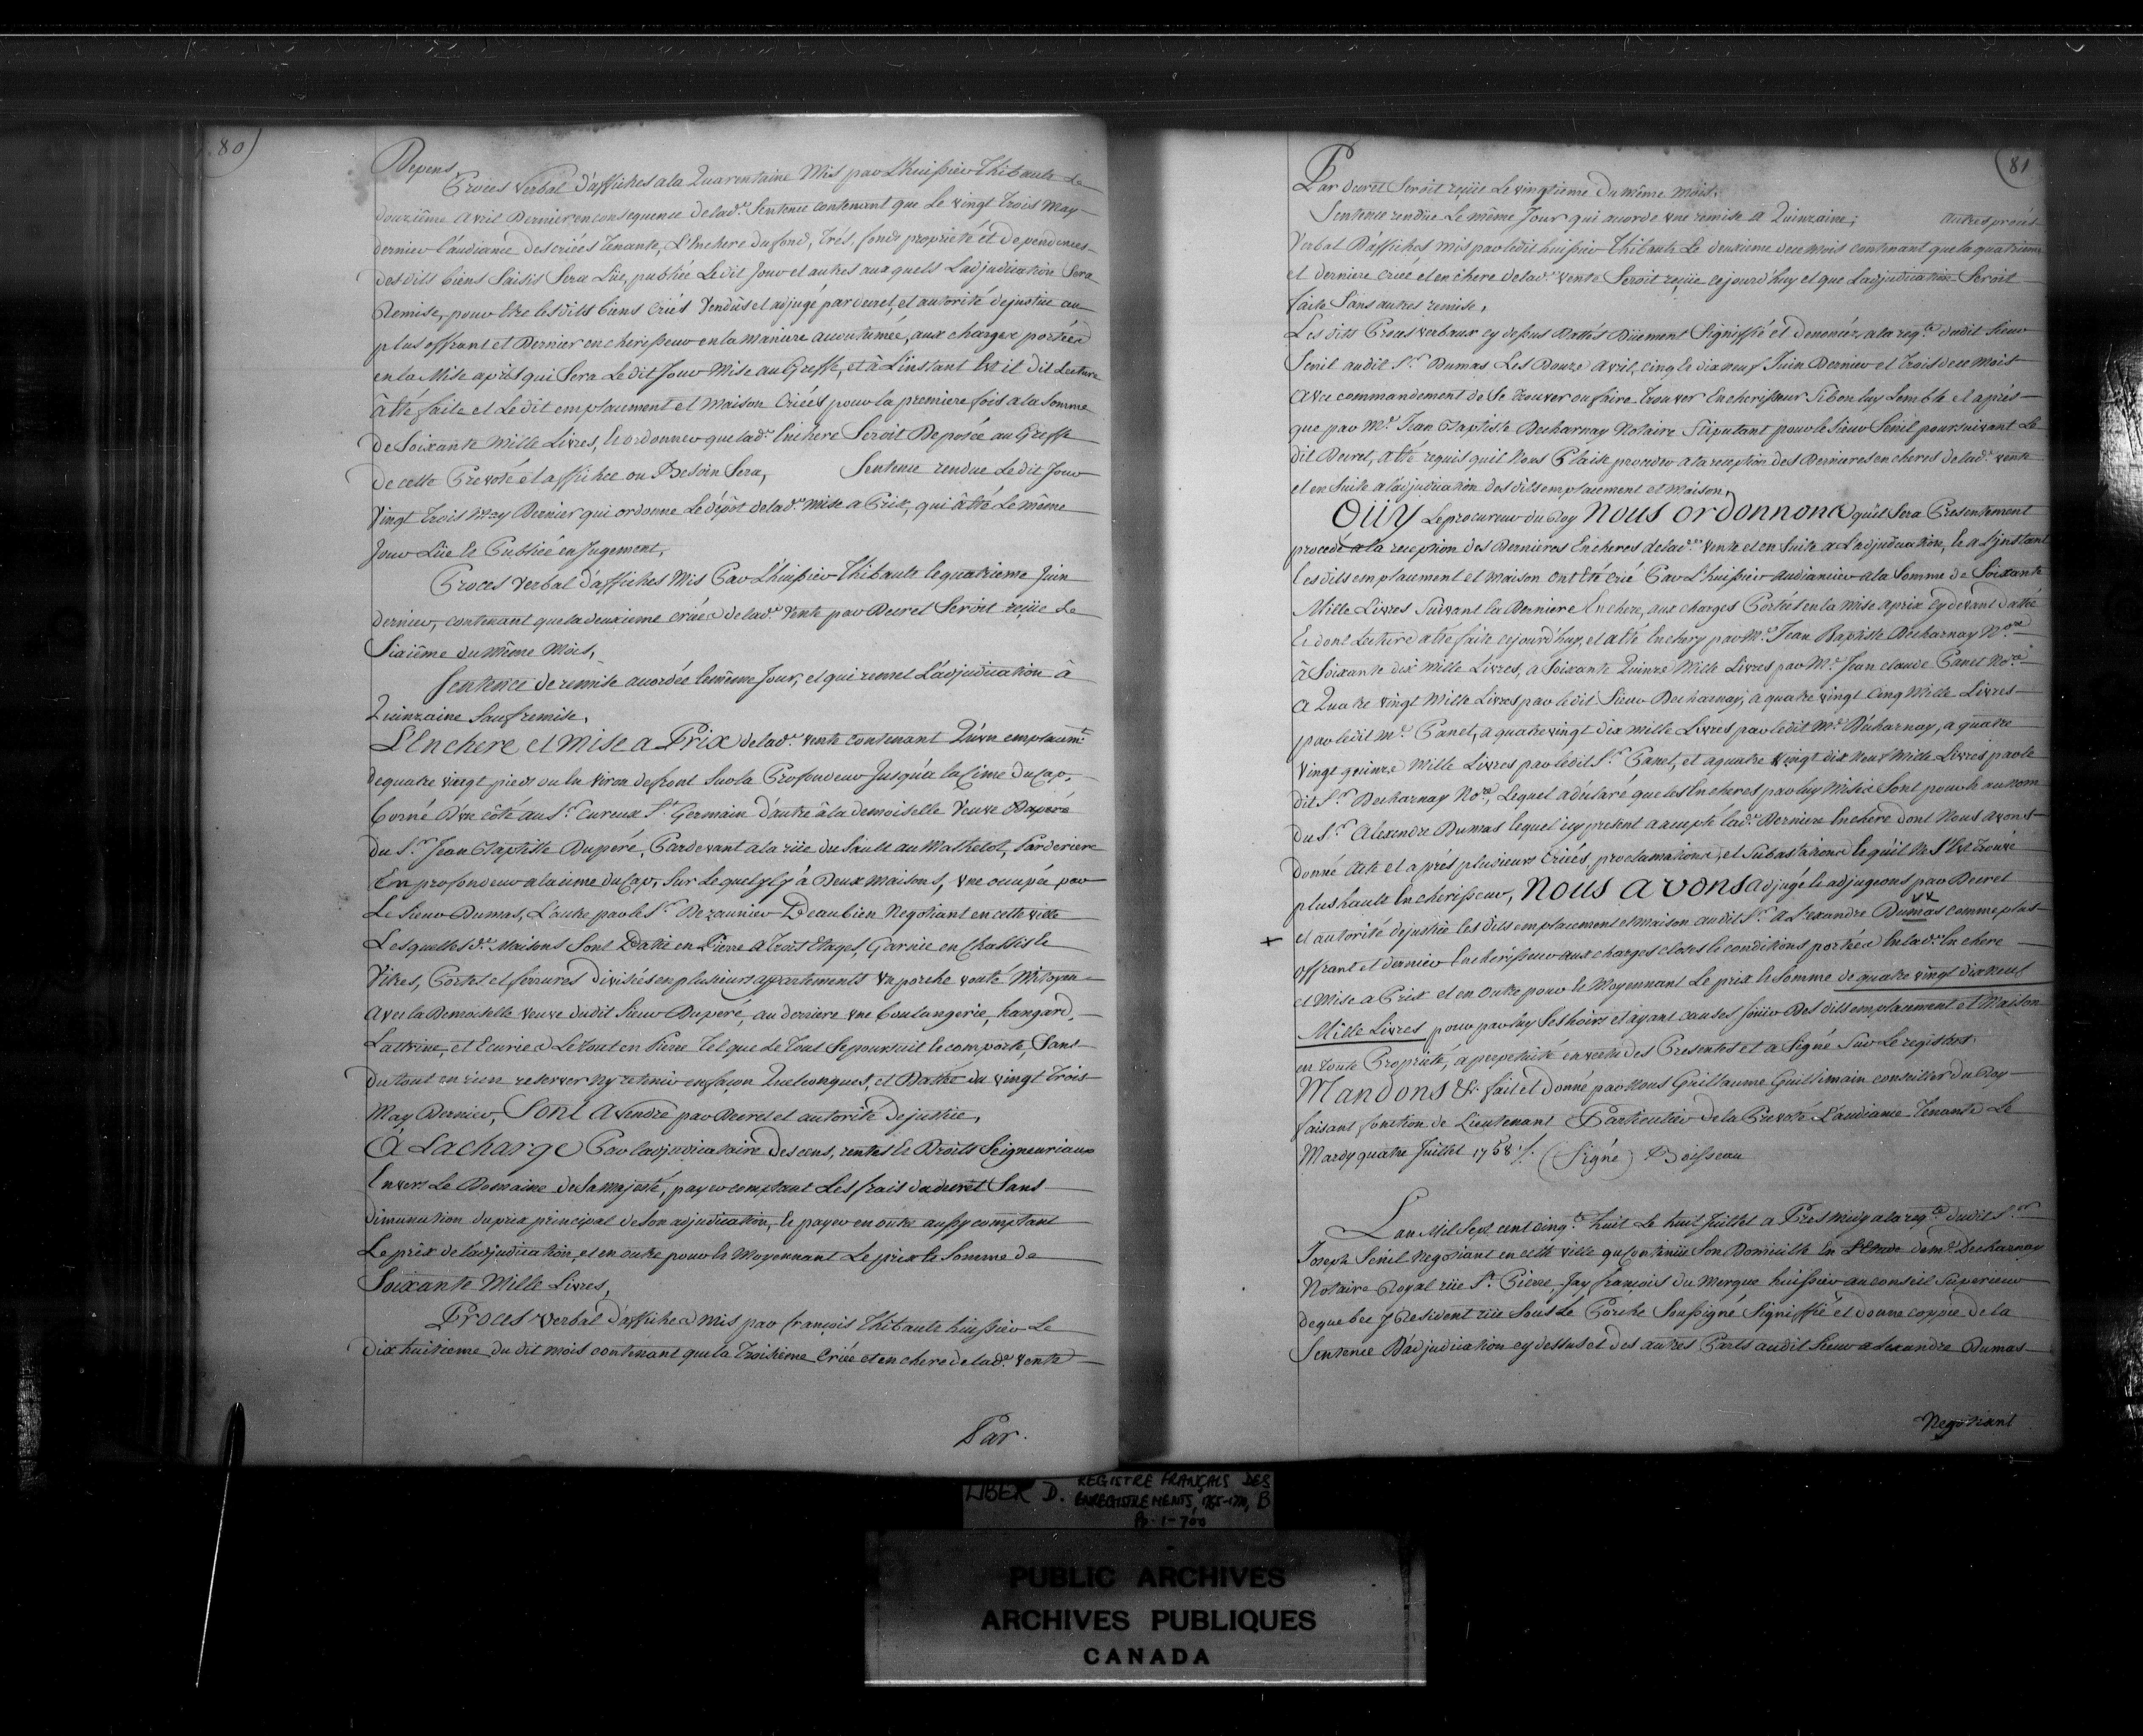 80)
Depens,
Procès verbal d'affiches a la Quarentaine Mis par L'huissier Thibault Le
douziême Avril Dernier en consequence de lad.e Sentence contenant que Le vingt Trois May
dernier L'audiance des criées Tenante, L'Enchere du fond, Trés, fonds propriété et Dependences
des dits biens Saisis Sera Lüe, publiée Le dit Jour et autres aux quels L'adjudication Sera
Remise, pour Etre les dits biens Criés Vendûs et adjugé par decret, et autorité de justice au
plus offrant et Dernier encherisseur en la Maniere accoutumée, aux charges portées
en la Mise a prix qui Sera Le dit Jour Mise au Greffe, et à L'instant Est il dit Lecture
à Eté faite et Le dit emplacement et Maison Criées pour la premiere fois a la Somme
de Soixante Mille Livres, Et ordonner que lad.e Enchere Seroit Deposée au Greffe
de cette Prevosté et affichée ou Besoin Sera, Sentence rendue Le dit Jour
Vingt Trois May Dernier qui ordonne Le dépôt de lad.e Mise a Prix, qui à Eté Le même
Jour Lüe Et Publiée en Jugement,
Procès verbal d'affiches Mis Par L'huissier Thibault le quatrieme Juin
dernier, contenant que la deuxieme criée de lad.e Vente par Decret Seroit reçüe Le
Sixiême du Même Mois,
Sentence de remise accordée le même Jour, et qui remet L'adjudication à
Quinzaine Sauf remise,
L'Enchere et Mise a Prix de lad.e Vente contenant Qu'un emplacem.t
de quatre vingt pieds ou En Viron de front Sur la Profondeur Jusqu'a la Cime du Cap,
borné D'un côté au S.r Cureux S.t Germain d'autre à la demoiselle Veuve Dupéré
du S.r Jean Baptiste Dupéré, Pardevant a la rüe du Sault au Mathelot, Parderiere
En profondeur a la cime du Cap, Sur Lequel Il y a Deux Maisons, une occupée par
Le Sieur Dumas, L'autre par le S.r Dezaunier Beaubien Negotiant en cette ville
Lesquelles d.es Maisons Sont Batie en Pierre a Trois Etages, Garnie en Chassis Et
Vitres, Portes et ferrures divisées en plusieurs appartements un porche vouté Mitoyen
avec la Demoiselle Veuve dudit Sieur Dupéré, au derriere une boulangerie, hangard,
Lattrine, et Ecuries Le tout en Pierre Tel que Le Tout Se poursuit Et comporte, Sans
du tout en rien reserver Ny retenir en façon Quelconques, et Datée du vingt Trois
May Dernier, Sont A vendre par Decret et autorité de justice,
A La charge Par l'adjudicataire des cens, rentes Et Droits Seigneuriaux
Envers Le Domaine de Sa Majesté, payer comptant Les frais du decret Sans
diminution du prix principal de Son adjudication, Et payer en outre aussy comptant
Le prix de l'adjudication, et en outre pour Et Moyennant Le prix Et Somme de
Soixante Mille Livres,
Proces Verbal d'affiches Mis par françois Thibault huissier Le
Dix huitieme du dit mois contenant que la Troisieme Criée et enchere de lad.e Vente
Par.
81
Par decret Seroit reçüe Le vingtieme du même mois.
Sentence rendüe Le même Jour qui accorde une remise a Quinzaine; Autres procès
Verbal D'affiches Mis par le dit huissier Thibault Le deuxieme de ce mois contenant que la quatrieme
et derniere criée et enchere de lad.e Vente Seroit reçüe cejourd'huy et que L'adjudication Seroit
faite Sans autres remise,
Les dits Procès verbaux cy dessus Datés Düement Signiffié et denoncés a la req.te dudit Sieur
Senil au dit S.r Dumas Les Douze Avril, cinq Et dix neuf Juin Dernier et Trois de ce Mois
Avec commandement de Se Trouver ou faire Trouver Encherisseur Si bon luy Semble et aprés
que par M.e Jean Baptiste Decharnay Notaire Stipulant pour le Sieur Senil poursuivant Le
dit Decret, a Eté requis qu'il Nous Plaise proceder a la reception des Dernieres encheres de lad.e vente
et en Suite a l'adjudication des dits emplacement et Maison,
Oüy Le procureur du Roy Nous ordonnons qu'il Sera Presentement
procedé a la reception des Dernieres Encheres de lad.e Vente et en Suite a L'adjudication, Et a L'instant
les dits emplacement et maison ont Eté crié Par L'huissier audiancier a la Somme de Soixante
Mille Livres Suivant la Derniere Enchere, aux charges Portées en la Mise a prix cy devant datée
Et dont Lecture a Eté faite cejourd'huy, et a Eté Enchery par M.e Jean Baptiste Decharnay N.re
à Soixante dix Mille Livres, a Soixante Quinze Mille Livres par M.e Jean claude Panet No.re
a Quatre vingt Mille Livres par le dit Sieur Decharnay, a quatre vingt Cinq Mille Livres
par le dit M.e Panet, a quatre vingt dix Mille Livres par le dit M.e Decharnay, a quatre
vingt quinze Mille Livres par le dit S.r Panet, et a quatre vingt dix Neuf Mille Livres par le
dit S.r Decharnay No.re, Lequel a déclaré que les Encheres par luy Mises Sont pour et au nom
du S.r Alexandre Dumas lequel icy present a accepté lad.e Derniere Enchere dont Nous avons
donné Acte et aprés plusieurs Criées proclamations, et Subastations Et qu'il Ne S'est Trouvé
plus hault Encherisseur, Nous avons adjugé Et adjugeons par Decret
+ et autorité de justice les dits emplacement et Maison au dit S.r Alexandre Dumas comme plus
offrant et dernier Encherisseur aux charges closes Et conditions portées En lad.e Enchere
et Mise a Prix et en Outre pour Et Moyennant Le prix Et Somme de quatre vingt dix neuf
Mille Livres pour par luy Ses hoirs et ayant causes Jouir Des dits emplacement et Maison
en toute Propriété, a perpetuité en vertu des Presentes et a Signé Sur Le registre.
Mandons &c. fait et donné par Nous Guillaume Guillimain conseiller du Roy
faisant fonction de Lieutenant Particulier de la Prevosté L'audiance Tenante Le
Mardy quatre Juillet 1758 ./. (Signé) Boisseau
L'an Mil Sept cent cinq.te huit Le huit Juillet a Pres Midy a la req.te dudit S.r
Joseph Senil Negotiant en cette ville qu'continüe Son Domicille En L'Etude de M.e Decharnay
Notaire Royal rüe S.t Pierre, Jay françois du Mergue huissier au conseil Superieur
de quebec y Resident rüe Sous Le Porche Soussigné Signiffié et donné coppie de la
Sentence D'adjudication cy dessus et des autres Parts audit Sieur alexandre Dumas
Negotiant
LIBER D. REGISTRE FRANÇAIS DES
ENREGISTREMENTS, B
Pp. 1-700
PUBLIC ARCHIVES
ARCHIVES PUBLIQUES
CANADA